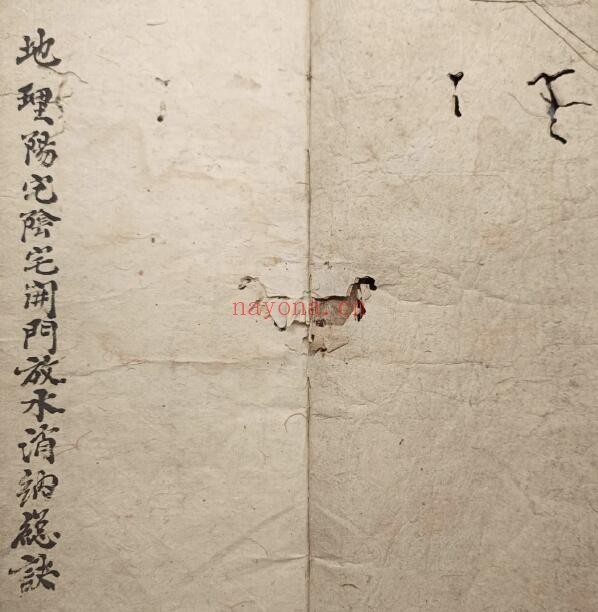 地理陽宅陰宅開門放水消納總訣
nayona.cn